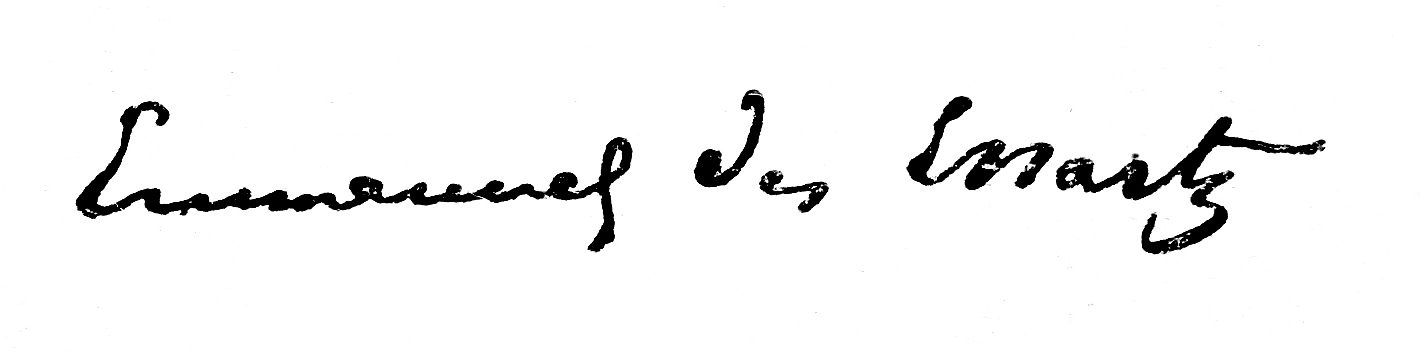 Emmanuel des Essarts